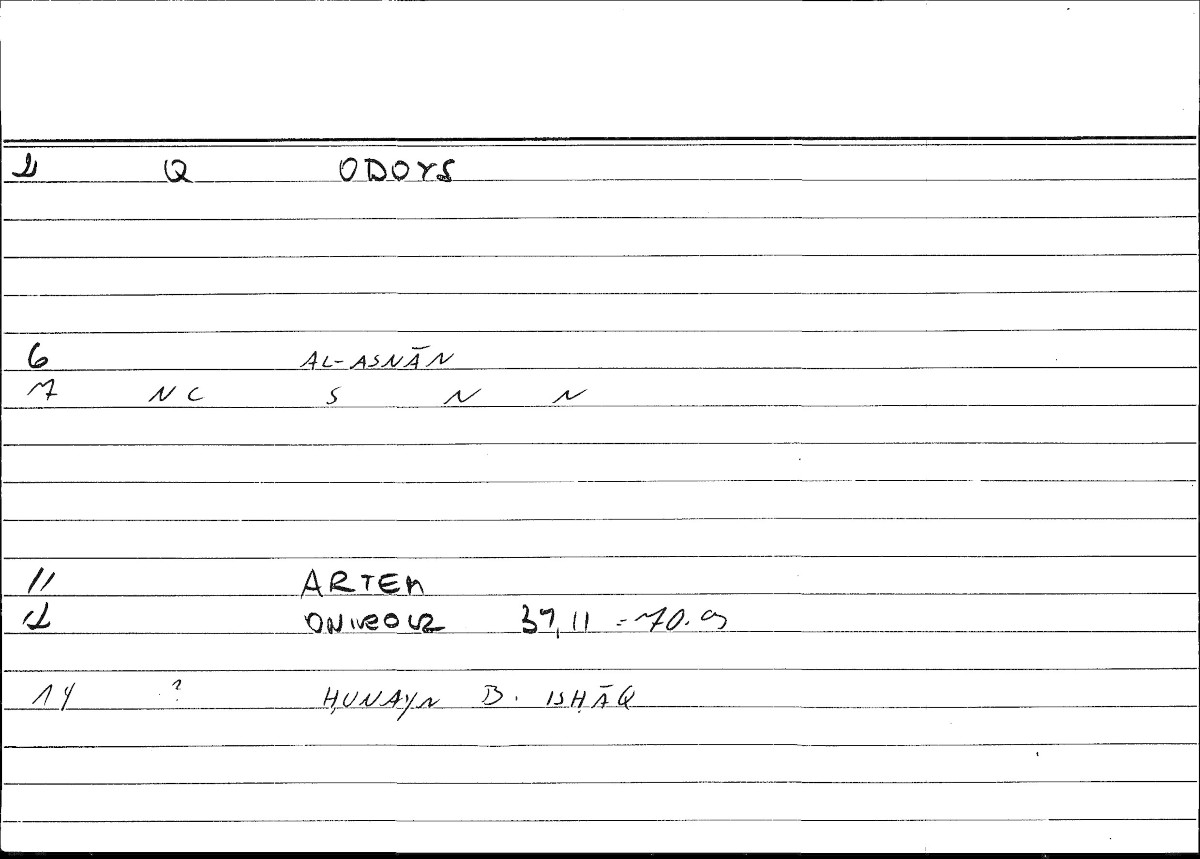 2 Q ODOYS
6 AL-ASNĀN
7 NC S N N
11 ARTEM
12 ONIROCR 37, 11 = 70.9
14 ? ḤUNAYN B. ISḤĀQ